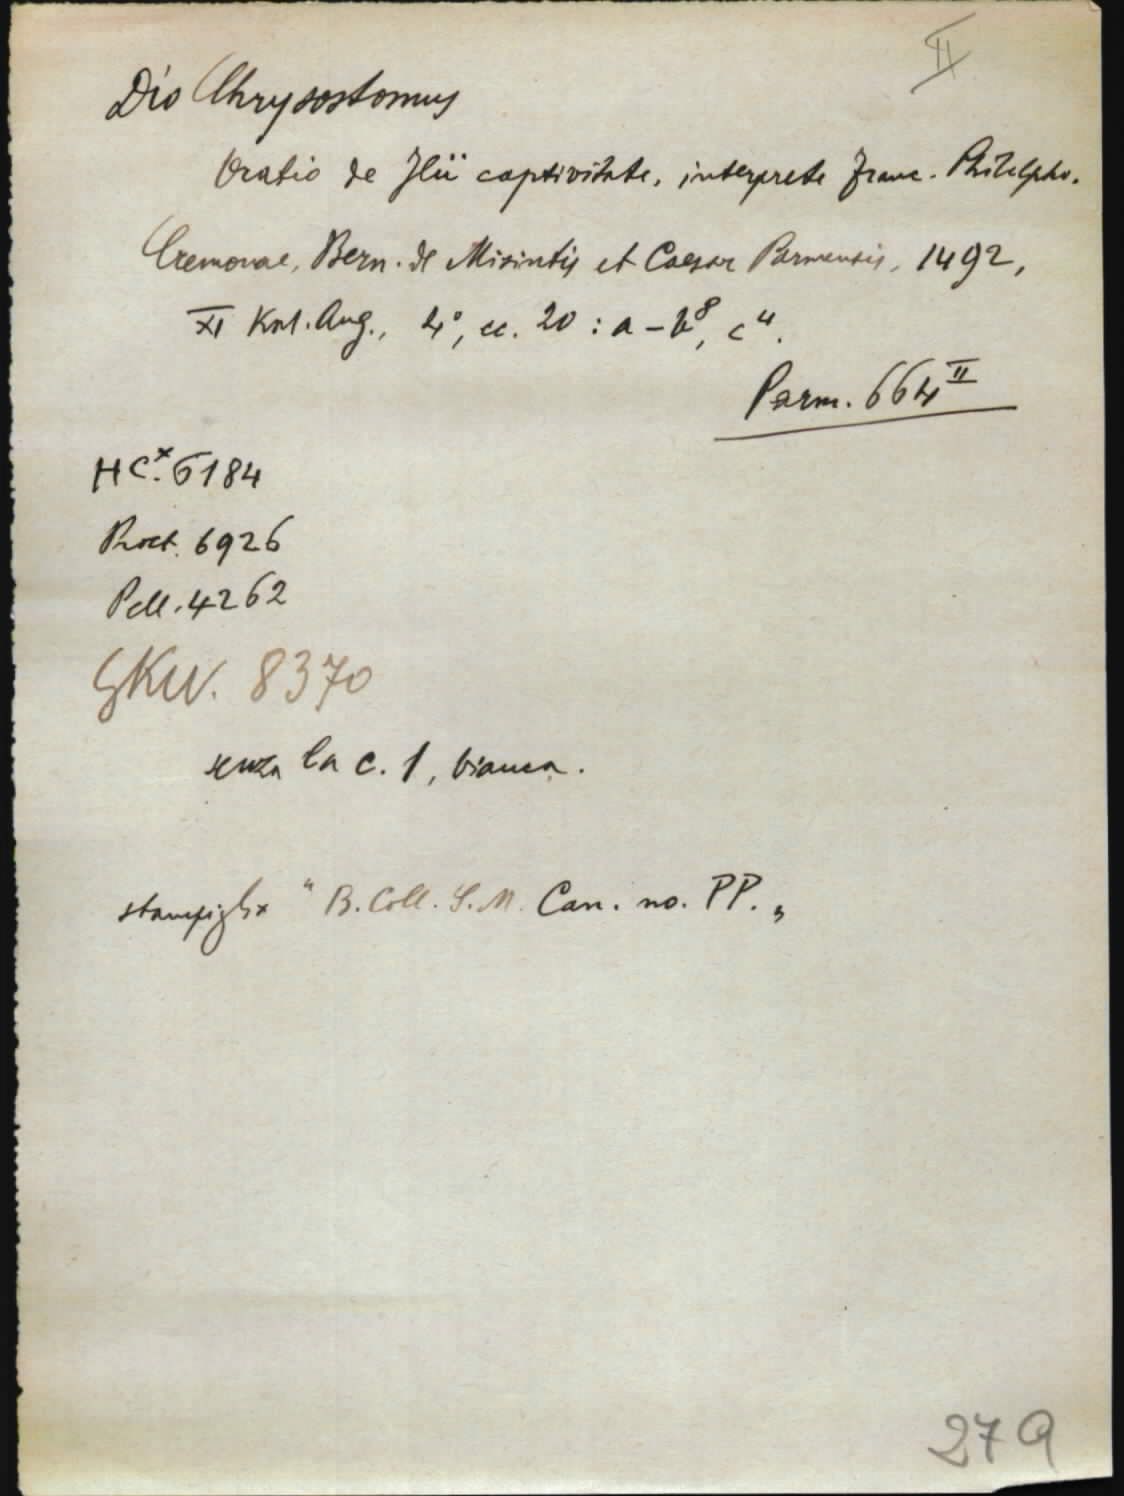 II
Dio Chrysostomus
Oratio de Ilii captivitate, interprete Franc. Philelpho.
Cremonae, Bern. de Misintis et Caesar Parmensis, 1492,
XI Kal. Aug., 4°, cc. 20 : a-b⁸, c⁴.
Parm. 664 II
HC.× 6184
Proct. 6926
Pell. 4262
GKW. 8370
senza la c. 1, bianca.
stampiglia "B. Coll. S. M. Can. no. PP."
279